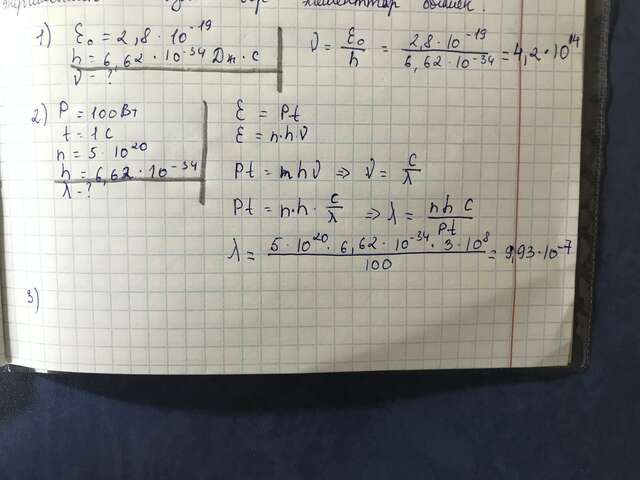 1) ε₀ = 2,8 · 10⁻¹⁹
h = 6,62 · 10⁻³⁴ Дж · с
ν - ?
ν = ε₀/h = 2,8 · 10⁻¹⁹ / 6,62 · 10⁻³⁴ = 4,2 · 10¹⁴
2) P = 100Вт
t = 1 с
n = 5 · 10²⁰
h = 6,62 · 10⁻³⁴
λ - ?
ε = Pt
ε = n·h·ν
Pt = nhν ⇒ ν = c/λ
Pt = n·h · c/λ ⇒ λ = nhc/Pt
λ = 5 · 10²⁰ · 6,62 · 10⁻³⁴ · 3 · 10⁸ / 100 = 9,93 · 10⁻⁷
3)